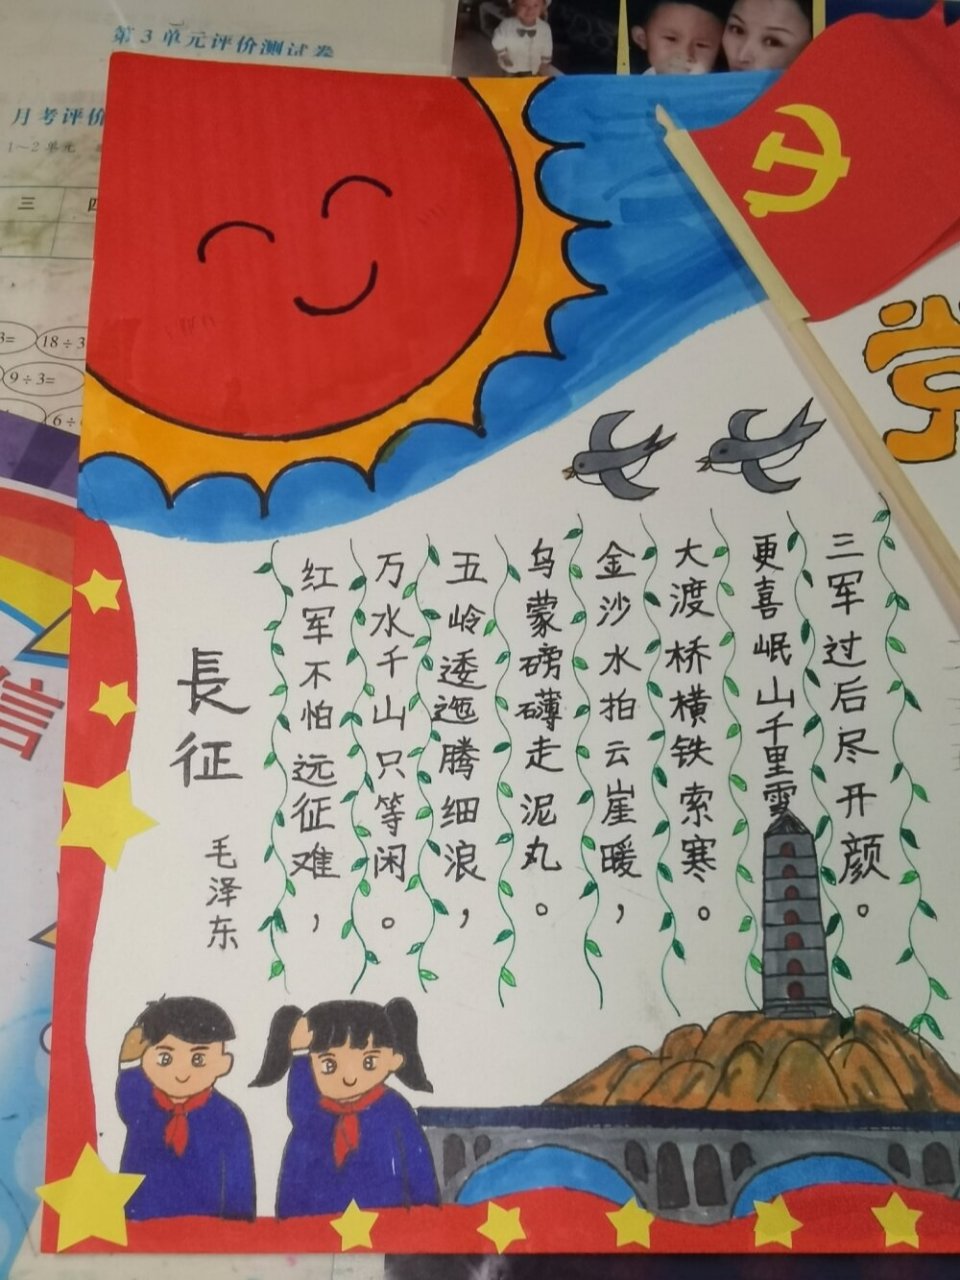 第3单元评价测试卷
月考评价
1～2单元
三 四
3= 18÷3
9÷3=
6÷
信
党
長征
毛泽东
红军不怕远征难，
万水千山只等闲。
五岭逶迤腾细浪，
乌蒙磅礴走泥丸。
金沙水拍云崖暖，
大渡桥横铁索寒。
更喜岷山千里雪
三军过后尽开颜。